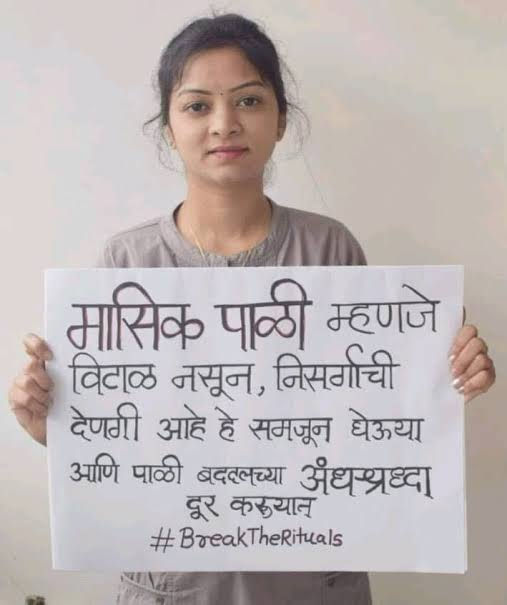 मासिक पाळी म्हणजे
विटाळ नसून, निसर्गाची
देणगी आहे हे समजून घेऊया
आणि पाळी बद्दलच्या अंधश्रध्दा
दूर करूयात
#BreakTheRituals